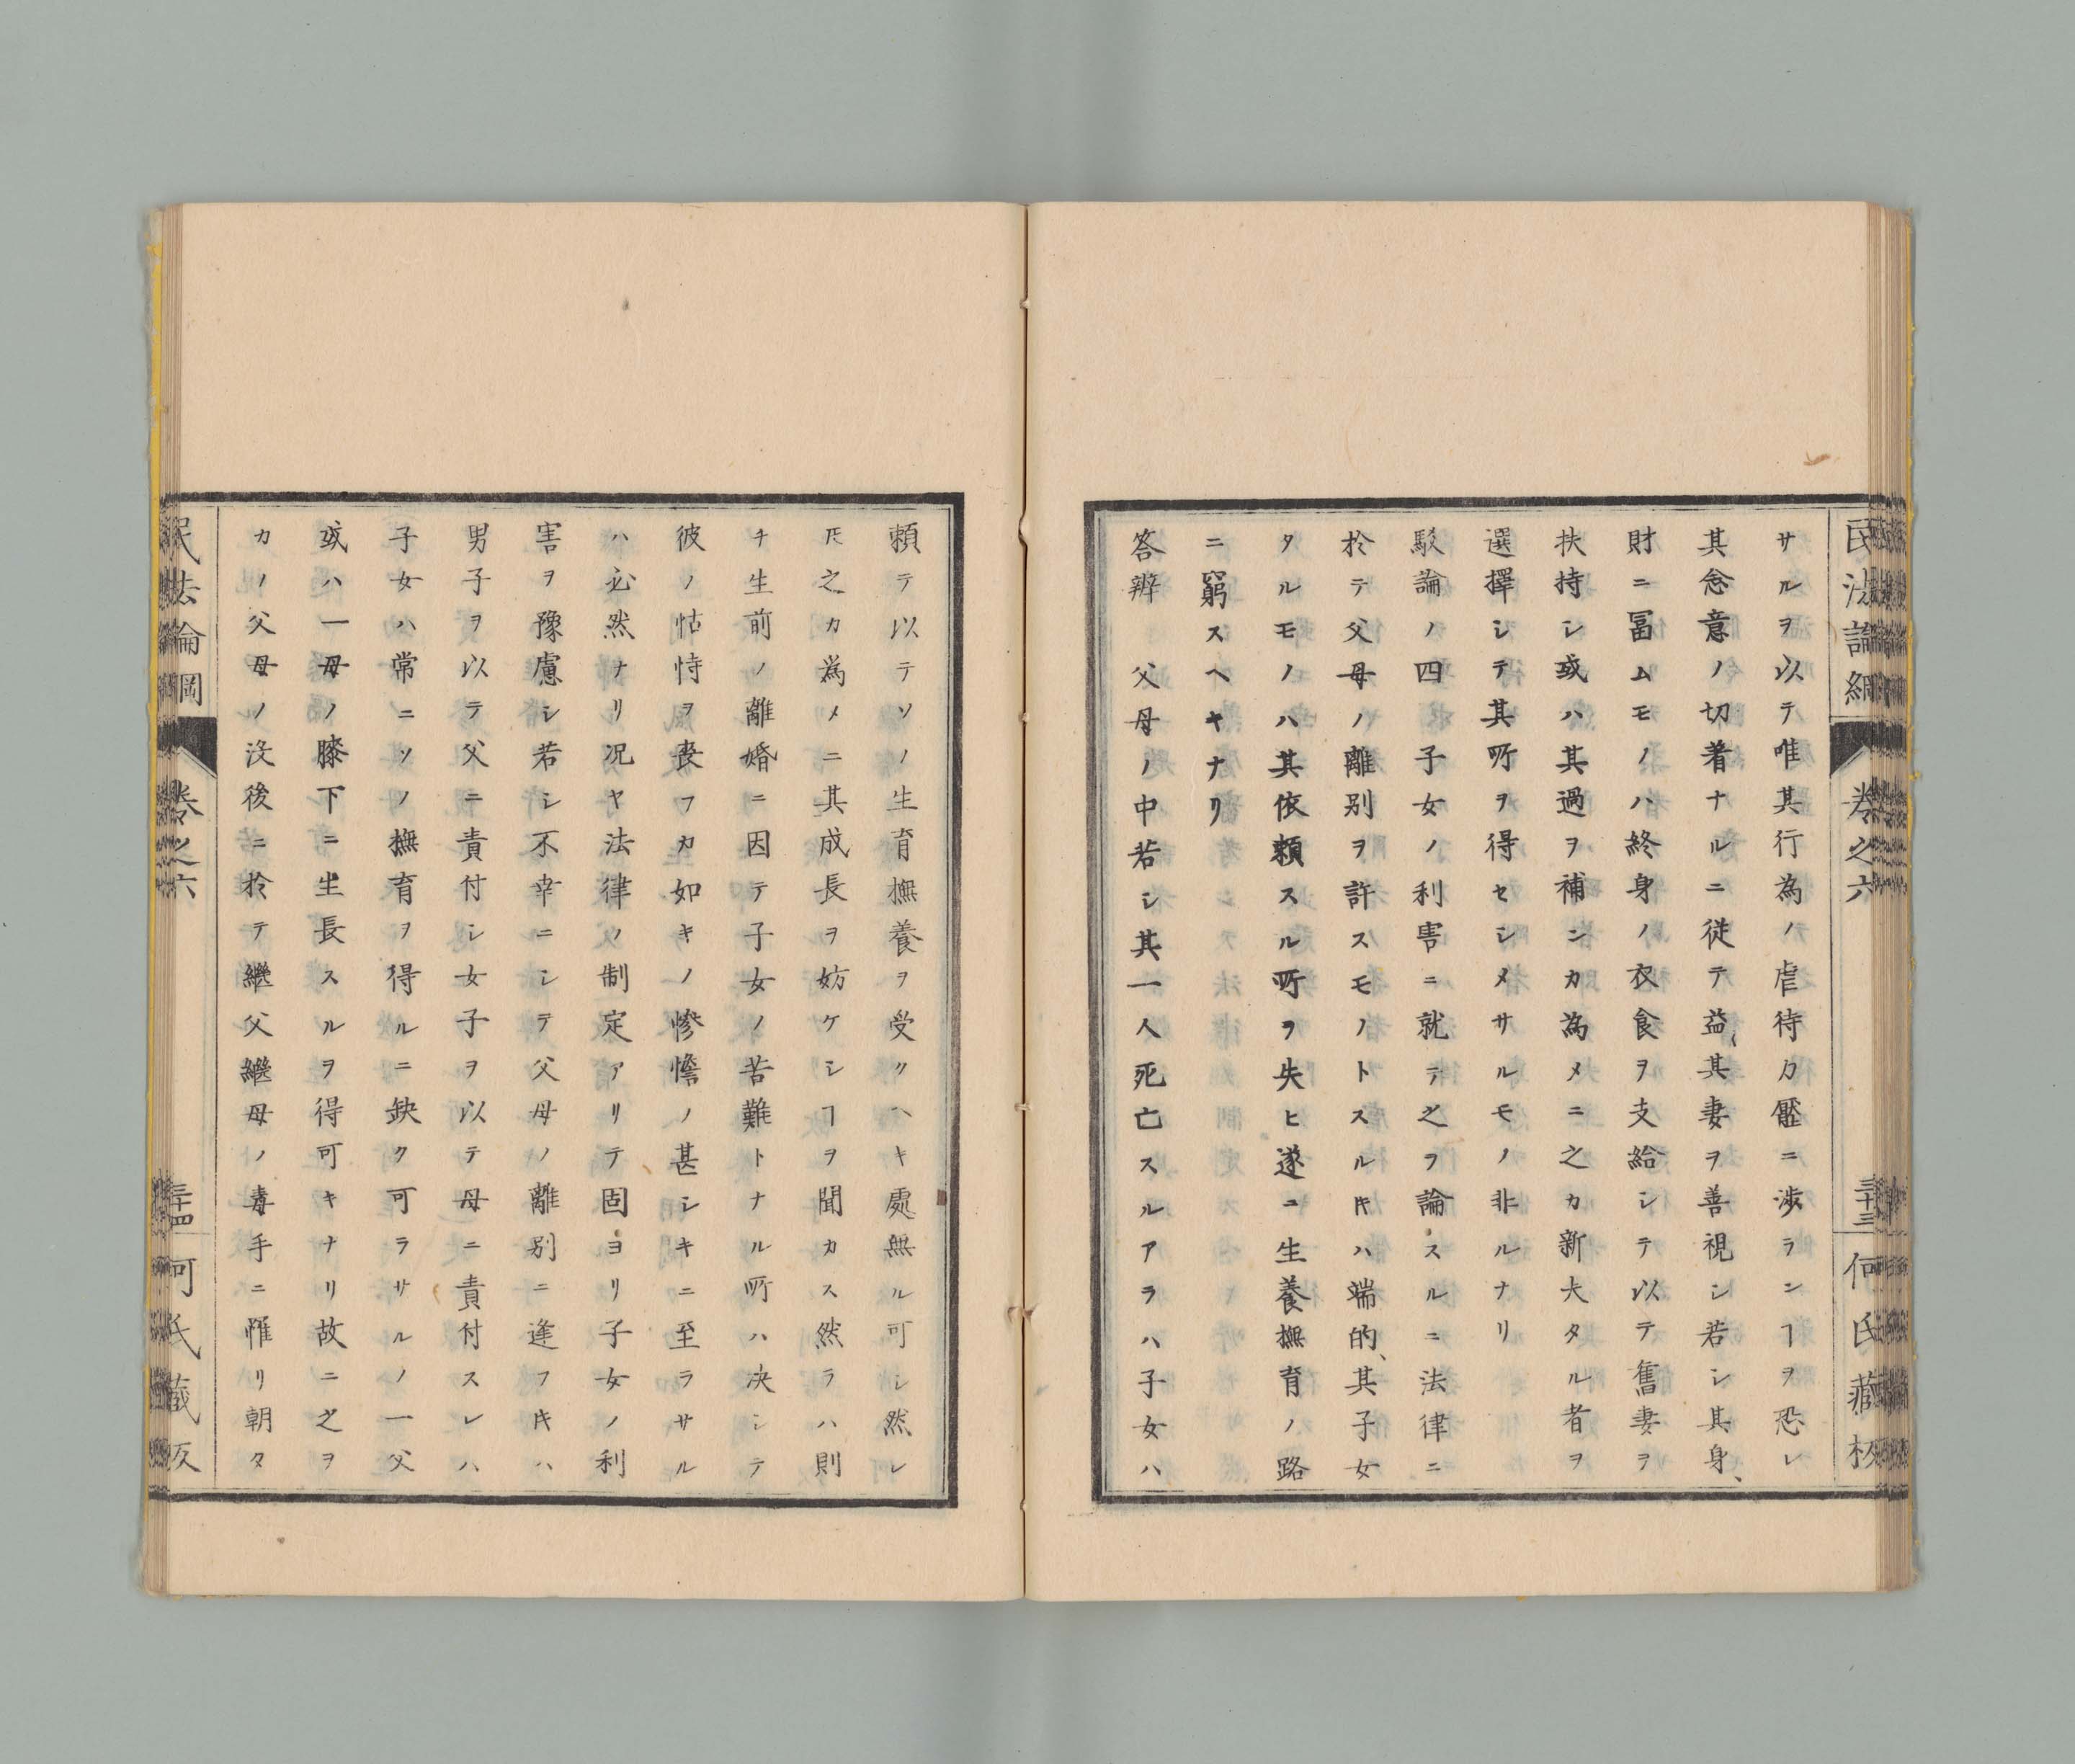 民法論綱 卷之六 三十三 何氏藏板
サルヲ以テ唯其行為ノ虐待カ壓ニ渉ランヿヲ恐レ
其念意ノ切着ナルニ従テ益〻其妻ヲ善視シ若シ其身、
財ニ冨ムモノハ終身ノ衣食ヲ支給シテ以テ舊妻ヲ
扶持シ或ハ其過ヲ補ンカ為メニ之カ新夫タル者ヲ
選擇シテ其所ヲ得セシメサルモノ非ルナリ
駁論ノ四 子女ノ利害ニ就テ之ヲ論スルニ法律ニ
於テ父母ノ離別ヲ許スモノトスルキハ端的、其子女
タルモノハ其依頼スル所ヲ失ヒ遂ニ生養撫育ノ路
ニ窮スヘキナリ
答辨 父母ノ中若シ其一人死亡スルアラハ子女ハ
頼テ以テソノ生育撫養ヲ受クヘキ處無ル可シ然レ
𪜈之カ為メニ其成長ヲ妨ケシヿヲ聞カス然ラハ則
チ生前ノ離婚ニ因テ子女ノ苦難トナル所ハ决シテ
彼ノ怙恃ヲ喪フカ如キノ慘憺ノ甚シキニ至ラサル
ハ必然ナリ况ヤ法律ノ制定アリテ固ヨリ子女ノ利
害ヲ豫慮シ若シ不幸ニシテ父母ノ離別ニ逢フキハ
男子ヲ以テ父ニ責付シ女子ヲ以テ母ニ責付スレハ
子女ハ常ニソノ撫育ヲ得ルニ缺ク可ラサルノ一父
或ハ一母ノ膝下ニ生長スルヲ得可キナリ故ニ之ヲ
カノ父母ノ没後ニ於テ繼父繼母ノ毒手ニ惟リ朝タ
民法論綱 卷之六 三十四 何氏藏板